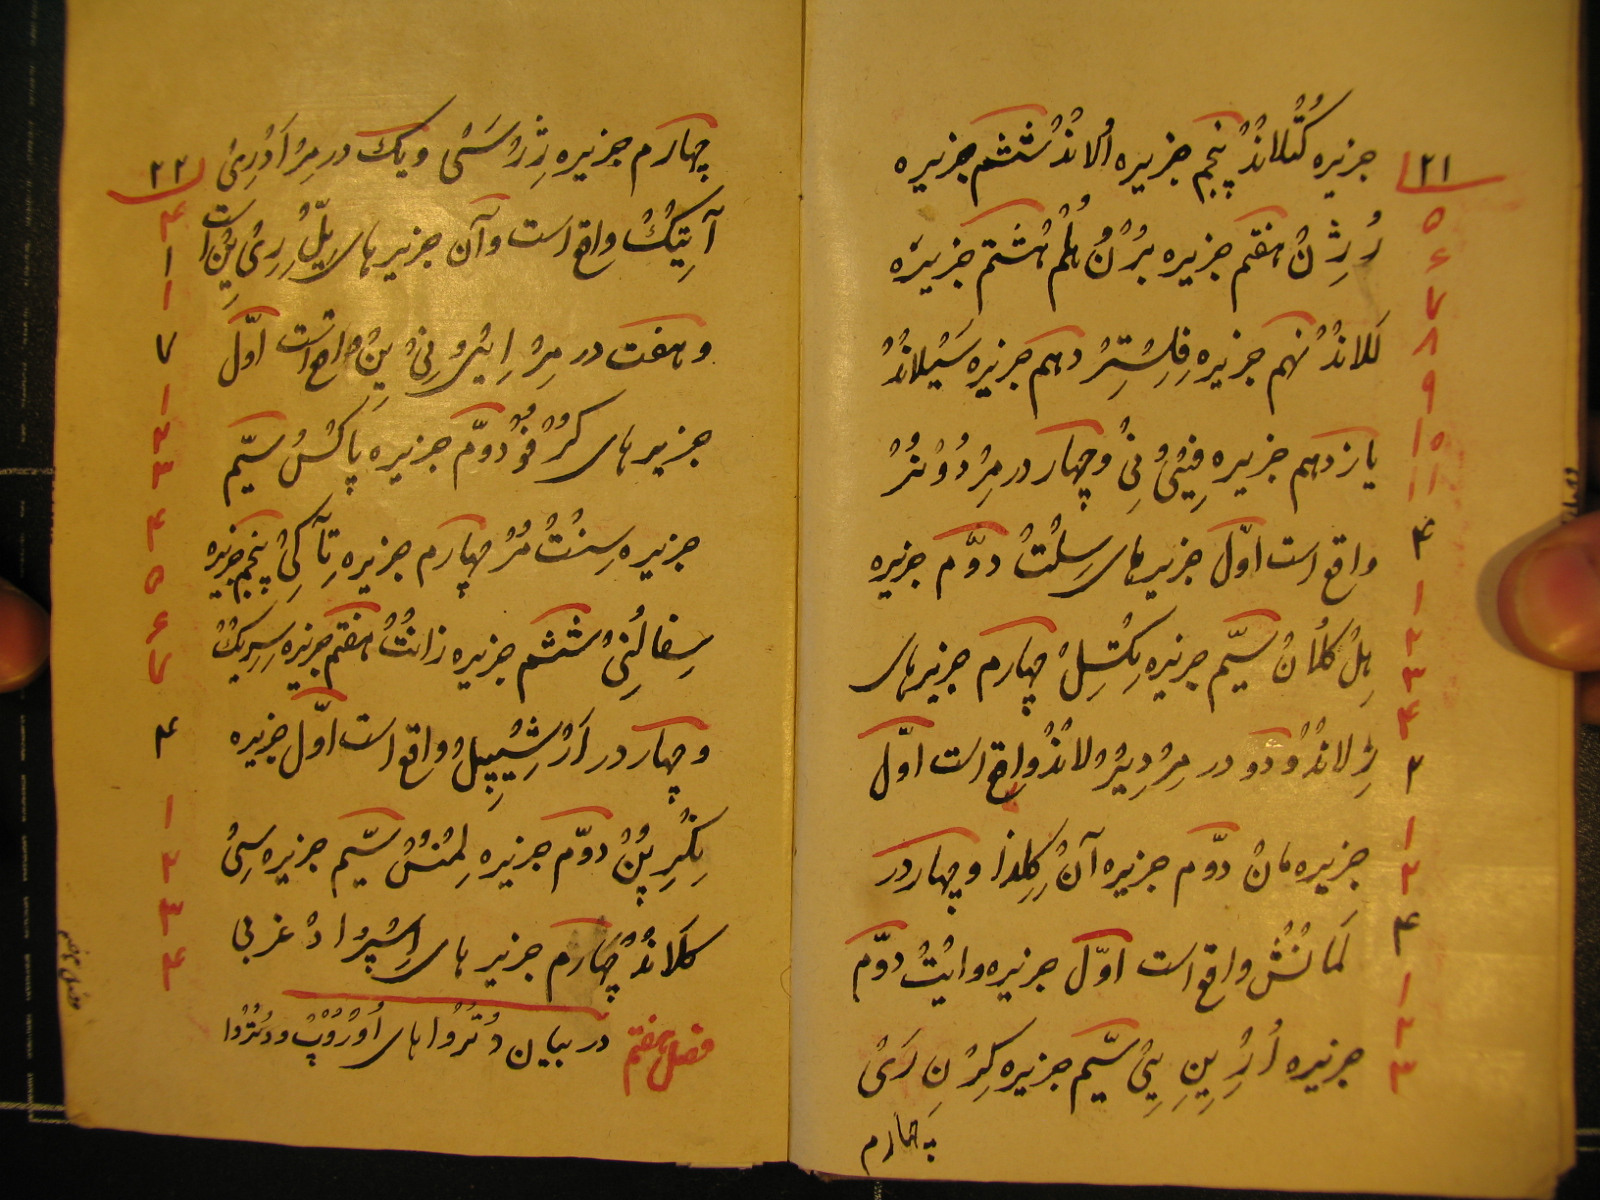 ۲۱
جزیره گُتْلانْدْ پنجم جزیره اُلانْدْ ششم جزیره
رُرِژِنْ هفتم جزیره بُرْنْ هُلْمْ هشتم جزیره
لَلانْدْ نهم جزیره فِلِسْتِرْ دهم جزیره سَیْلانْدْ
یازدهم جزیره فِیُنِیْ و چهار در مِرْ دُوْنُرْ
واقع است اوّل جزیرهای سِلُتْ دوّم جزیره
هِلْ گلانْ سیّم جزیره تِکْسِلْ چهارم جزیرهای
زِلانْدْ و دو در مِرْ دِیْرْلانْدْ واقع است اوّل
جزیره مانْ دوّم جزیره آنْ گِلِذا و چهار در
لَمانْشْ واقع است اوّل جزیره وایْتْ دوّم
جزیره اُرِیْنِیِیْ سیّم جزیره گِرْنِ زَیْ
چهارم
۵
۶
۷
۸
۹
۱۰
۱۱
۴
۱
۲
۳
۴
۲
۱
۲
۴
۱
۲
۳
۲۲
چهارم جزیره ژِرْسَیْ و یک در مِرْ اَدْرِیْ
آتِیْکْ واقع است و آن جزیرهای ایلّیْرِیْیِنْ است
و هفت در مِرْ اِیُنِیْیِنْ واقع است اوّل
جزیرهای کُرْفُوْ دوّم جزیره پاکْسُ سیّم
جزیره سِنْتْ مُرْ چهارم جزیره تِآکِیْ پنجم جزیره
سِفالُنِیْ ششم جزیره زانْتْ هفتم جزیره سِرِیْگْ
و چهار در اَرْشِیْپِلْ واقع است اوّل جزیره
نِگْرِپُنْ دوّم جزیره لِمْنُسْ سیّم جزیره سِیْ
کلانْدْ چهارم جزیرهای اِسْپُرادْ غربی
فصل هفتم در بیان دُتْرُوا های اُوْرُوْپْ و دُتْرُوا
۴
۱
۱
۷
۱
۲
۳
۴
۵
۶
۷
۴
۱
۲
۳
۴